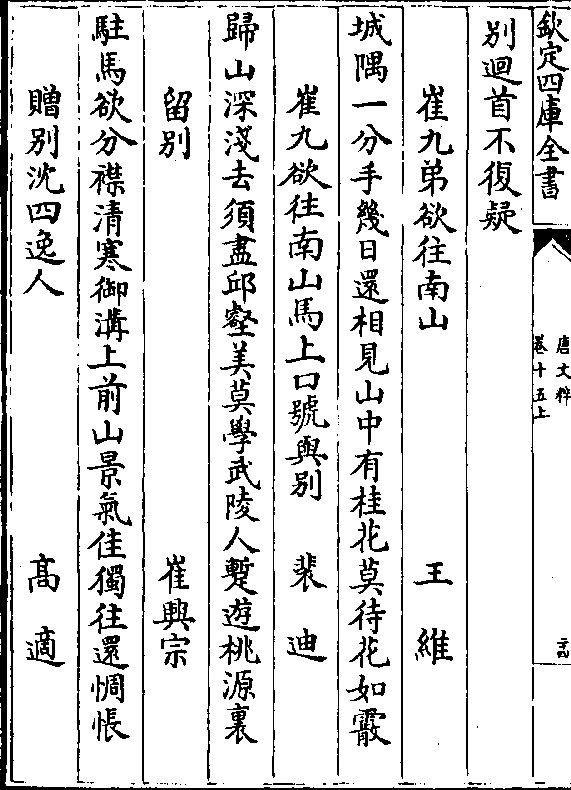 欽定四庫全書
唐文粹
卷十五上
別迴首不復疑
崔九弟欲往南山 王維
城隅一分手幾日還相見山中有桂花莫待花如霰
崔九欲往南山馬上口號與別 裴迪
歸山深淺去須盡邱壑美莫學武陵人蹔遊桃源裏
留別 崔興宗
駐馬欲分襟清寒御溝上前山景氣佳獨往還惆悵
贈別沈四逸人 髙適